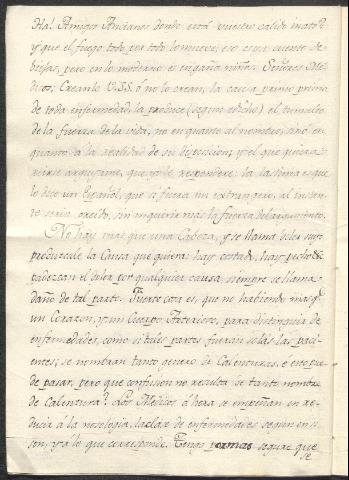 Ha! Amigos Ancianos donde está vuestro calido inato?
y que el fuego todo, por todo lo mueve; eso es un cuento de
brujas, pero en lo moderno es engaña niños. Señores Me-
dicos, Creanlo V.SS. ó no lo crean, la causa primo prima
de toda enfermedad, la produce (segun dicho) el tumulto
de la fuerza de la vida, no en quanto al nombre, sino en
quanto á la realidad de su disposicion; y el que quiera
venir á arguirme, que yo le respondere: la lastima es que
lo dice un Español, que si fuera un extrangero, al insten-
te seria creido, sin inquirir mas la fuerza del argumento.
No hay mas que una Cabeza, y se llama dolor suyo
produzcale la Causa que quiera; hay costado, hay pecho &c.
padezcan el dolor por qualquier causa siempre se llama
daño de tal parte. Fuerte cosa es, que no habiendo mas q.e
un Corazon, y un Cuerpo Arterioso, para distinguir de
enfermedades, como si tales partes fueran solas las paci-
entes; se nombran tanto genero de Calenturas. é esto pue-
de pasar, pero que confusion no resulta de tanto nombre
de Calentura? Los Medicos á hora se empeñan en re-
ducir á la nosologia, la clase de enfermedades segun en si
son, y á lo que corresponde. Tengo por mas seguro que
se